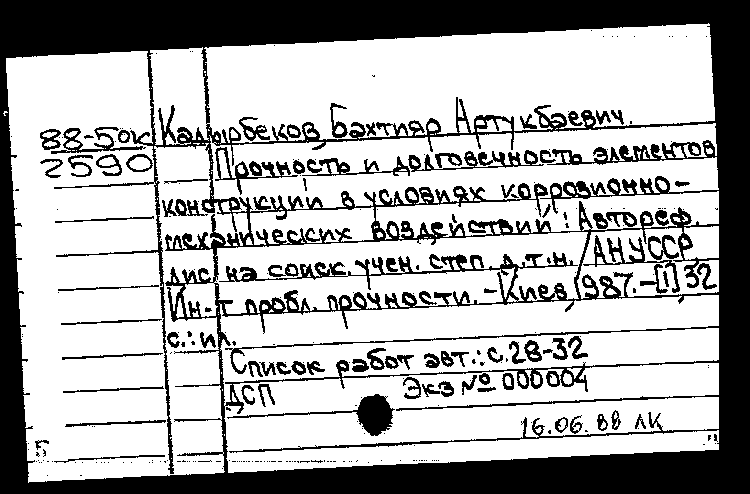 88-5ок Кадырбеков, Бахтияр Артукбаевич.
2590 Прочность и долговечность элементов
конструкций в условиях коррозионно-
механических воздействий : Автореф.
дис. на соиск. учен. степ. д.т.н. /АН УССР,
Ин-т пробл. прочности. -Киев, 1987. -[1], 32
с.: ил.
Список работ авт.: с.28-32
ДСП Экз № 000004
16.06.88 ЛК
5